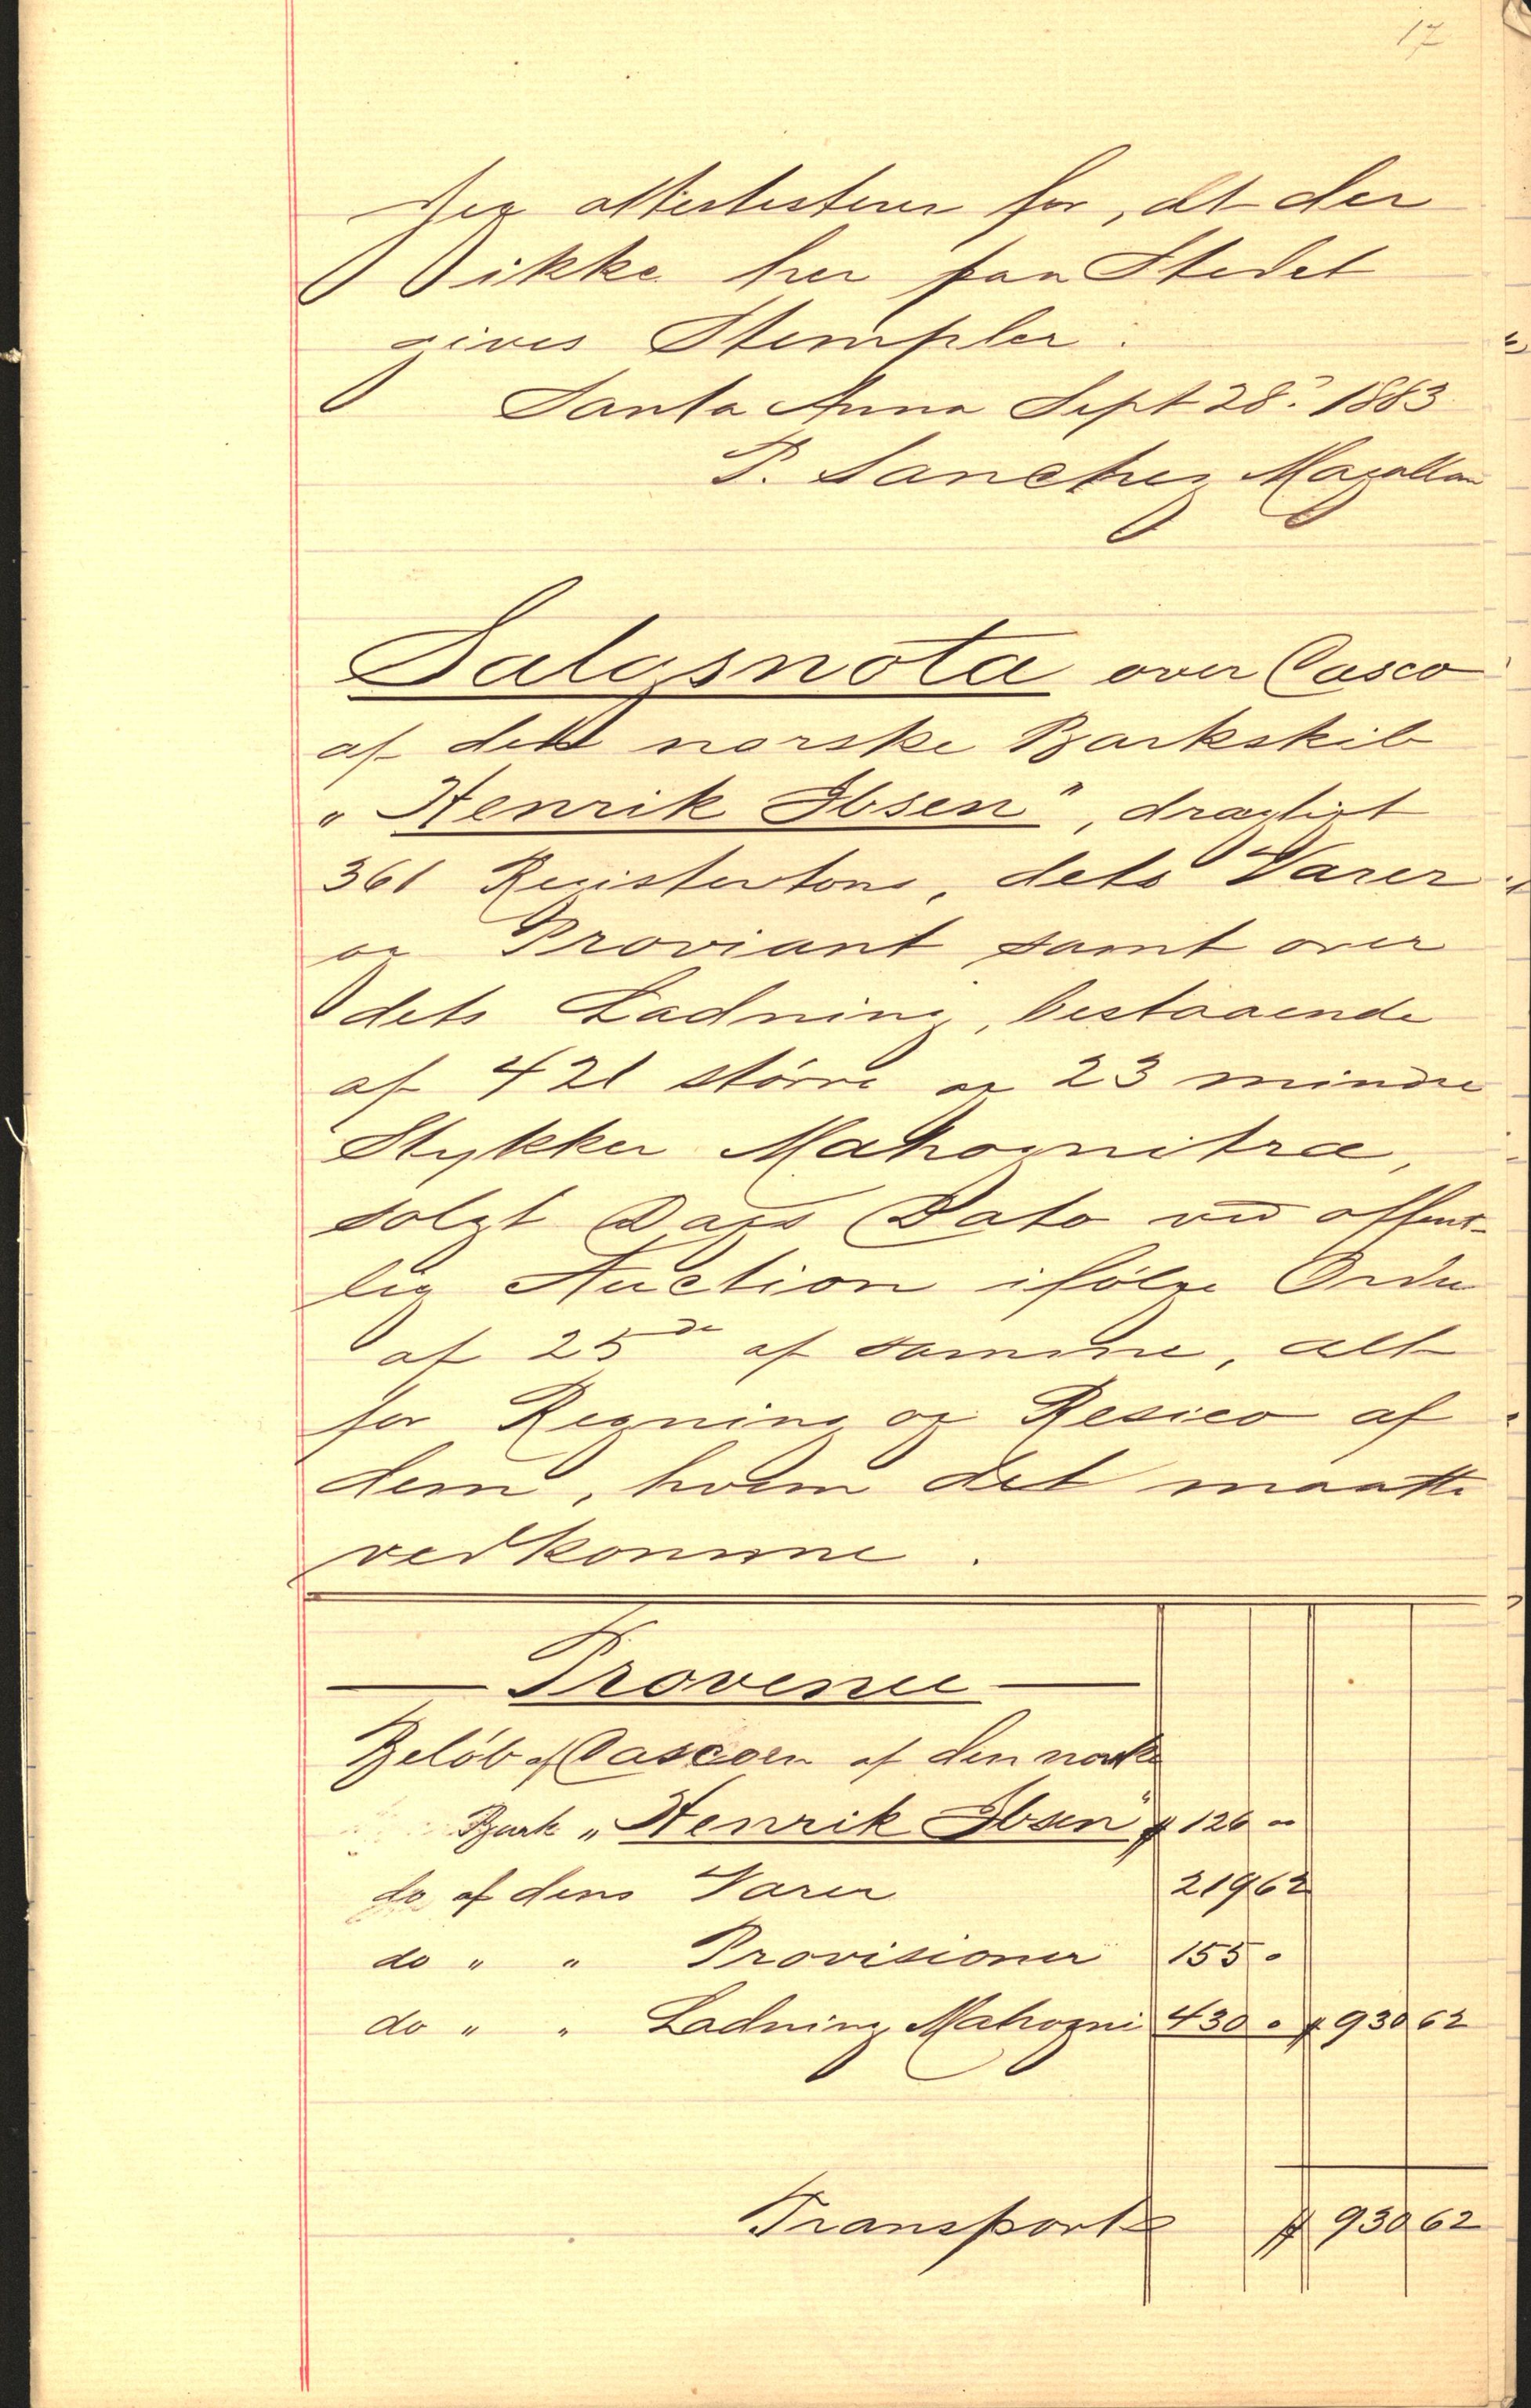 17
Jeg attesterer for, at der
ikke her paa Stedet
gives Stempler.
Santa Anna Sept 28. 1883
P. Sanchez Magallan
Salgsnota over Casco
af det norske Barkskib
„Henrik Ibsen", drægtigt
361 Registertons, dets Varer
og Proviant samt over
dets Ladning, bestaaende
af 421 större og 23 mindre
Stykker Mahognitræ,
solgt Dags Dato ved offent-
lig Auction ifölge Ordre
af 25de af samme, alt
for Regning og Resico af
dem, hvem det maatte
vedkomme.
Provenue
Belöb af Cascoen af den norske
Bark „Henrik Ibsen" $ 126 "
do af dens Varer 219 62
do " " Provisioner 155 "
do " " Ladning Mahogni 430 " $ 930 62
Transport $ 930 62